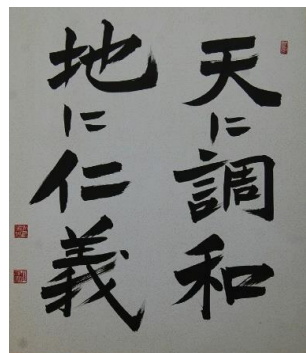 天に調和
地に仁義